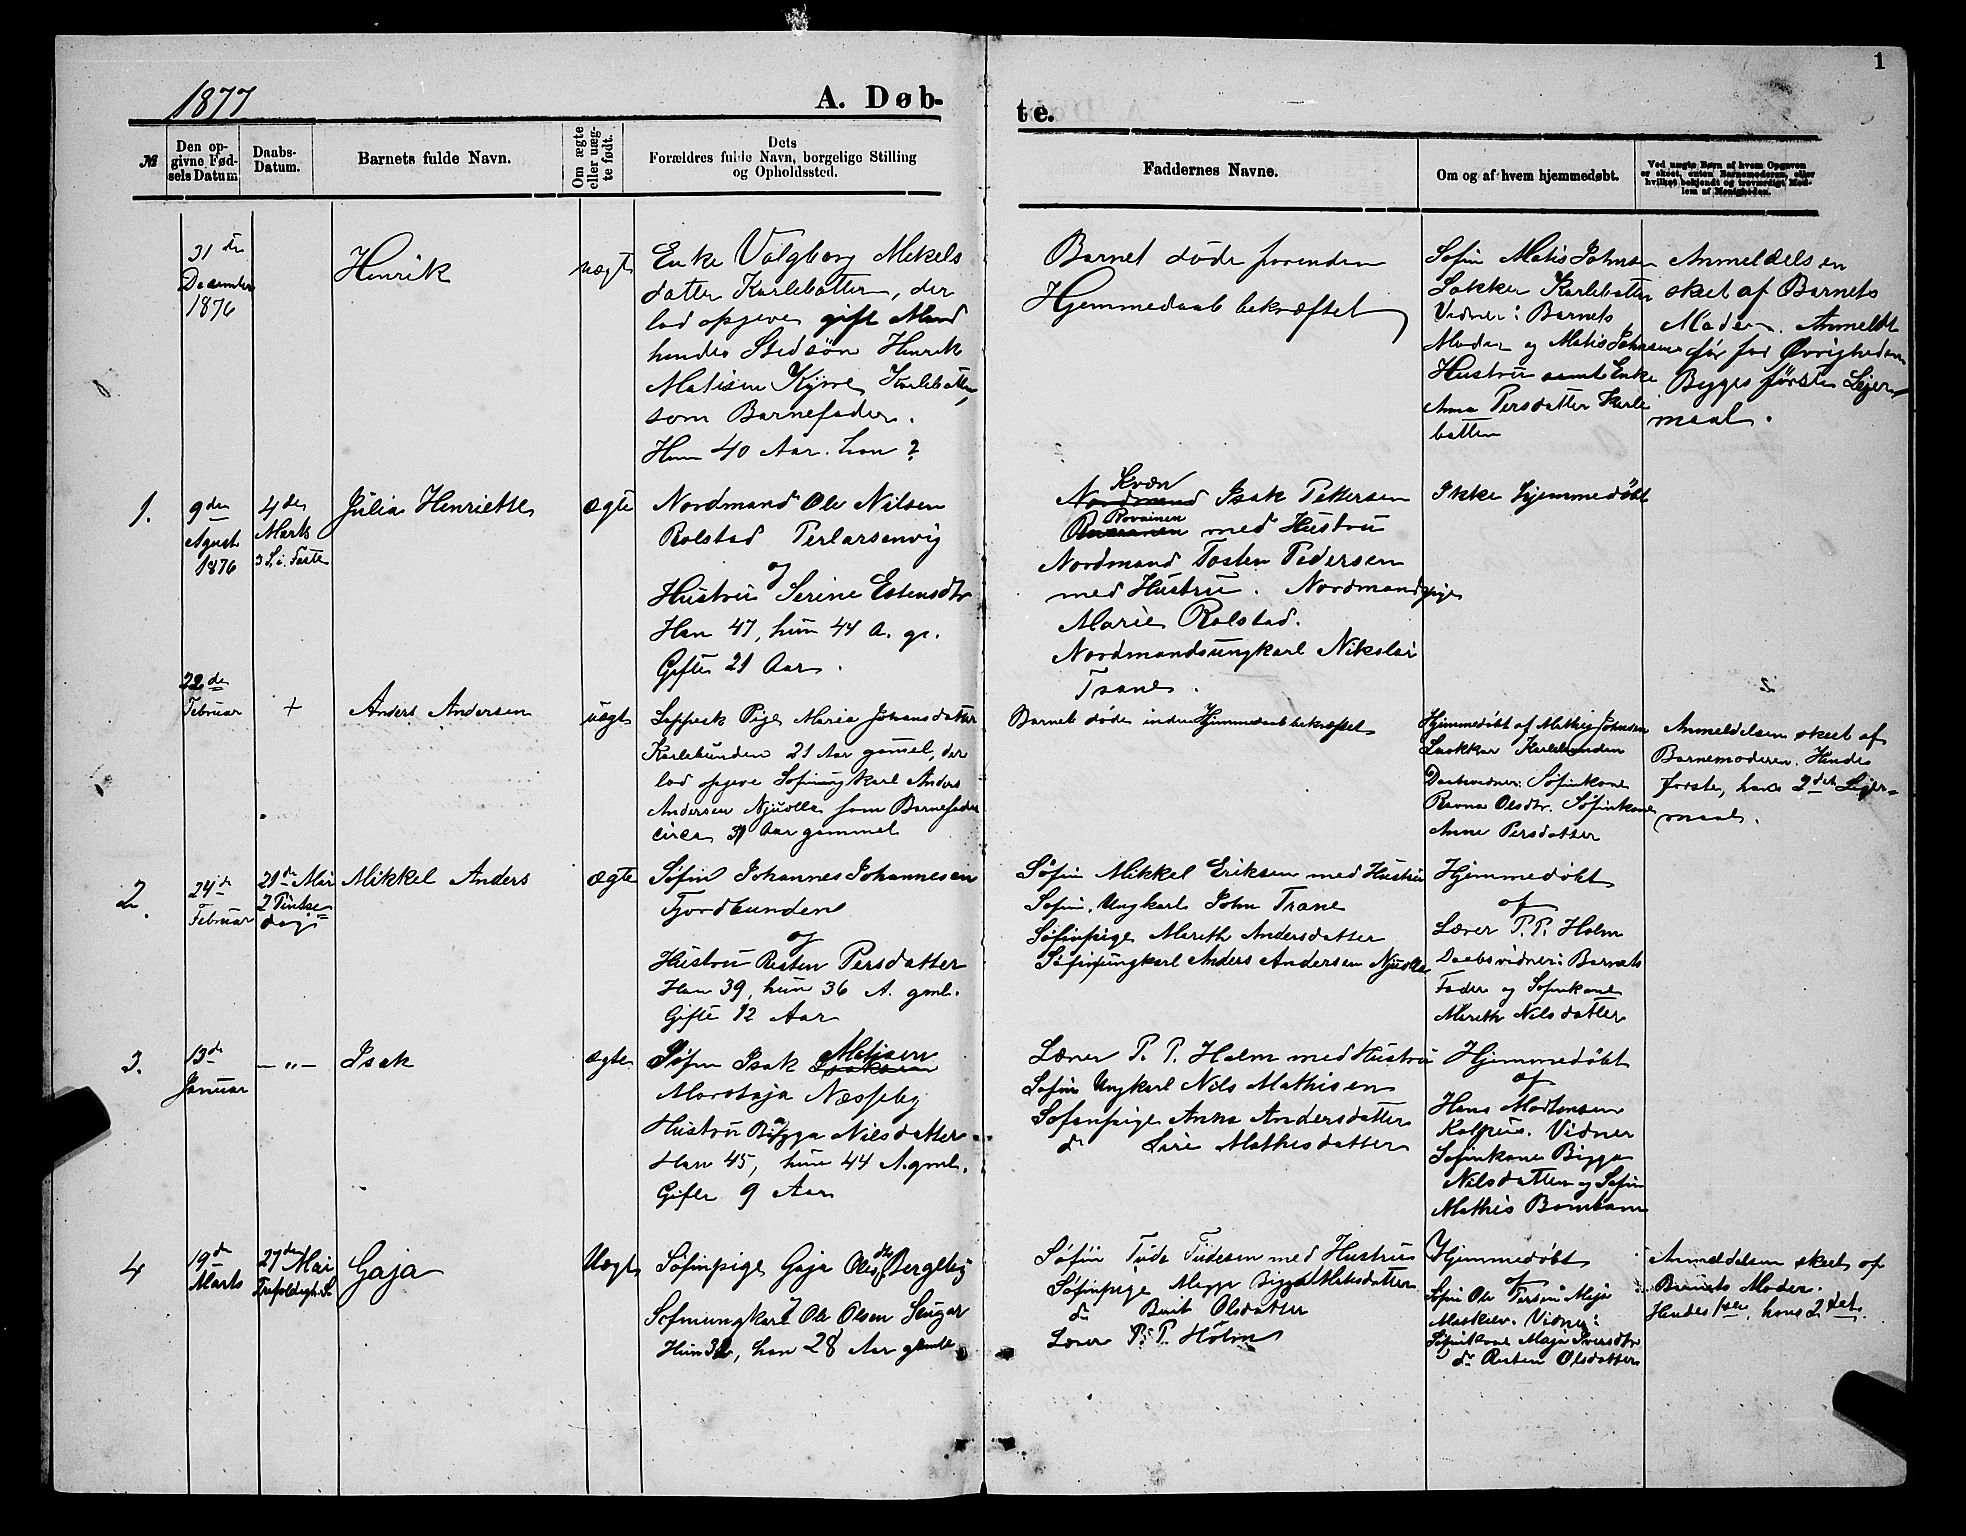 1
1877
A. Døb-
te.
№
Den op-
givne Fød-
sels Datum
Daabs-
Datum.
Barnets fulde Navn.
Om ægte
eller uæg-
te født.
Dets
Forældres fulde Navn, borgelige Stilling
og Opholdssted.
Faddernes Navne.
Om og af hvem hjemmedøbt.
Ved uægte Børn af hvem Opgaven
er skeet, enten Barnemoderen, eller
hvilket bekjendt og troværdigt Med-
lem af Menigheden.
31 de
Desember
1876
Henrik
uægte
Enke Valgborg Mikels
datter Karlebotten, der
lod opgive gift Mand
hendes Stedsön Henrik
Matisen Kjyre, Karlebotten,
som Barnefader.
Hun 40 Aar. han ?
Barnet døde forinden
Hjemmedaab bekræftet
Søfin Matis Johnsen
Lakker Karlebotten
Vidner: Barnets
Moder og Matis Johnsens
Hustru samt Enke
Anna Persdatter Karle
botten
Anmeldelsen
skeet af Barnets
Moder. Anmeldt
før for Øvrigheden
Begges første Leier-
maal.
1.
9 den
August
1876
4 de
Marts
3 S. i. Faste
Julia Henriette
ægte
Nordmand Ole Nilsen
Rolstad Perlarsenvig
og
Hustru Serine Estensdtr
Han 47, hun 44 A. gr.
Gifte 21 Aar.
Kvæn
Nordmand Isak Pettersen
Rovainen
med Hustru
Nordmand Tosten Pedersen
med Hustru. Nordmandspige
Marie Rolstad.
Nordmandsungkarl Nikolai
Trane.
Ikke hjemmedøbt
22 de
Februar
+
Anders Andersen
uægt
Lappesk Pige Maria Johansdatter
Karlebunden 21 Aar gamel, der
lod opgive Søfinungkarl Anders
Andersen Njuolla som Barnefader
circa 31 Aar gammel
Barnet døde inden Hjemmedaab bekræftet
Hjemmedøbt af Mathis Johnsen
Laokkar Karlebunden
Daabsvidner: Søfinkone
Ravna Olsdtr. Søfinkone
Anne Persdatter
Anmeldelsen skeet af
Barnemoderen. Hendes
første, hans 2det Leier-
maal.
2.
24 de
Februar
21 de Mai
2 Pintse
dag
Mikkel Anders
ægte
Søfin Johannes Johannesen
Fjordbunden
og
Hustru Risten Persdatter
Han 39, hun 36 A. gml.
Gifte 12 Aar
Søfin Mikkel Eriksen med Hustru
Søfin. Ungkarl John Trane
Søfinpige Mareth Andersdatter
Søfinungkarl Anders Andersen Njuolla
Hjemmedøbt
af
Lærer P. P. Holm
Daabsvidner: Barnets
Fader og Søfinkone
Mareth Nilsdatter
3.
13 de
Januar
— „ —
Isak
ægte
Matisen
Søfin Isak Isaksen
Morotaja Næsseby
Hustru Bigga Nilsdatter
Han 45, hun 44 A. gml.
Gifte 9 Aar
Lærer P. P. Holm med Hustru
Søfin Ungkarl Nils Mathisen
Søfinpige Anna Andersdatter
do Sire Mathisdatter
Hjemmedøbt
af
Hans Mortensen
Kolpus. Vidner
Søfinkone Bigga
Nilsdatter og Søfin
Mathis Bomban
4
19 de
Marts
27 de Mai
Trefoldigh. S.
Gaja
Uægte
Søfinpige Gaja Olsdtr Bergeby
Søfinungkarl Ole Olsen Slugar
Hun 32, han 28 Aar gamle
Søfin Tude Tudesen med Hustru
Søfinpige Magga Bigga Matisdatter
do Berit Olsdatter
Lærer P. P. Holm
Hjemmedøbt
af
Søfin Ole Persen Maja
Vidner:
Søfinkone Maja Iversdtr
do Risten Olsdatter
Anmeldelsen skeet af
Barnets Moder.
Hendes 1ste, hans 2det.